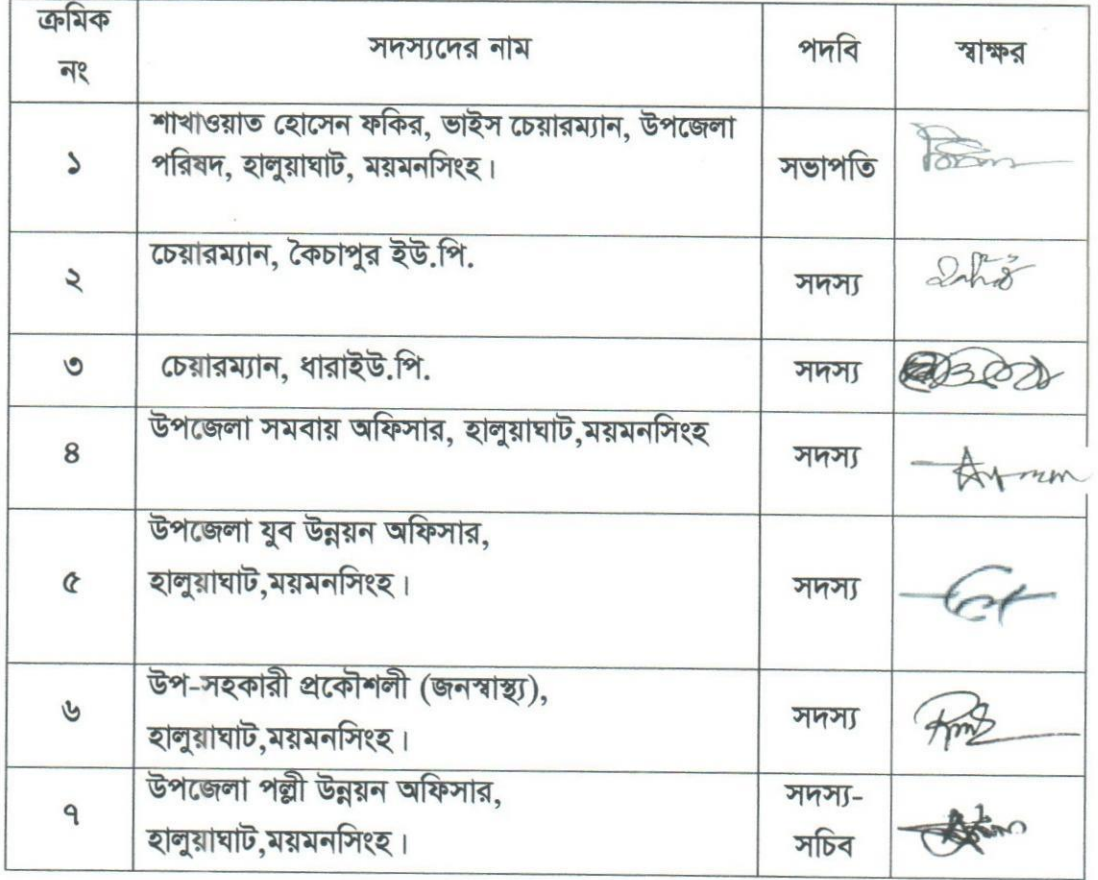 ক্রমিক
নং
সদস্যদের নাম
পদবি
স্বাক্ষর
১
শাখাওয়াত হোসেন ফকির, ভাইস চেয়ারম্যান, উপজেলা
পরিষদ, হালুয়াঘাট, ময়মনসিংহ।
সভাপতি
২
চেয়ারম্যান, কৈচাপুর ইউ.পি.
সদস্য
৩
চেয়ারম্যান, ধারাইউ.পি.
সদস্য
৪
উপজেলা সমবায় অফিসার, হালুয়াঘাট,ময়মনসিংহ
সদস্য
৫
উপজেলা যুব উন্নয়ন অফিসার,
হালুয়াঘাট,ময়মনসিংহ।
সদস্য
৬
উপ-সহকারী প্রকৌশলী (জনস্বাস্থ্য),
হালুয়াঘাট,ময়মনসিংহ।
সদস্য
৭
উপজেলা পল্লী উন্নয়ন অফিসার,
হালুয়াঘাট,ময়মনসিংহ।
সদস্য-
সচিব